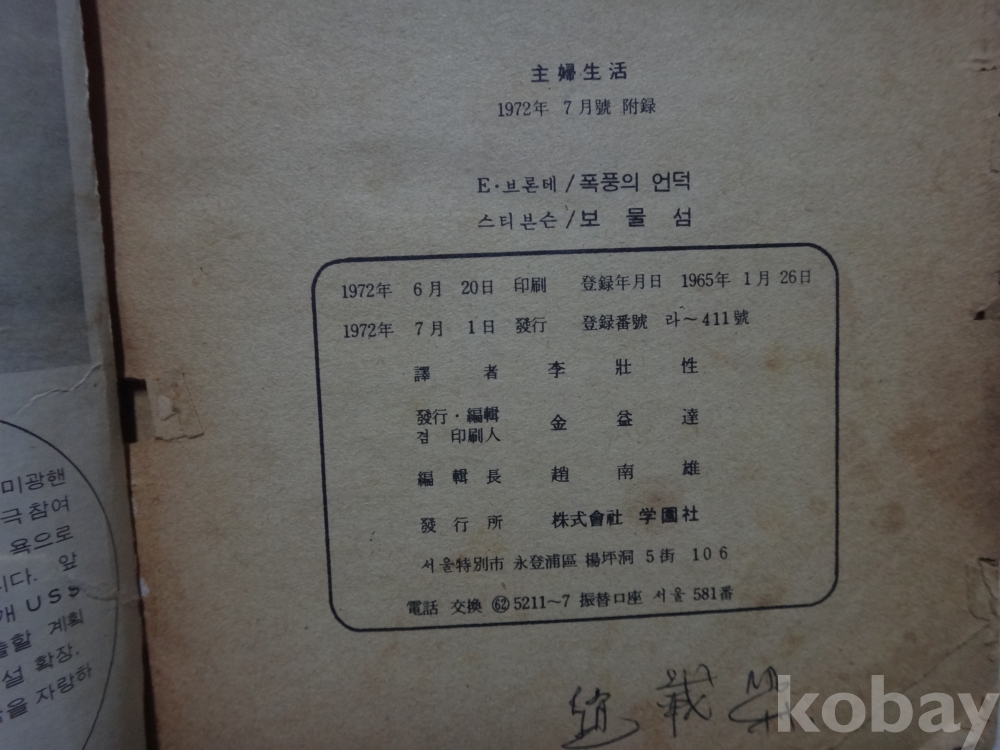 主婦生活
1972年 7月號 附録
E·브론테/폭풍의 언덕
스티븐슨/보물섬
1972年 6月 20日 印刷 登録年月日 1965年 1月 26日
1972年 7月 1日 發行 登録番號 라~411號
譯者 李壯性
發行·編輯
겸 印刷人 金益達
編輯長 趙南雄
發行所 株式會社 学園社
서울特別市 永登浦區 楊坪洞 5街 106
電話 交換 62 5211~7 振替口座 서울 581番
미광핸
극참여
욕으로
니다. 앞
개 USS
출할 계획
설 확장.
을 자랑하
kobay